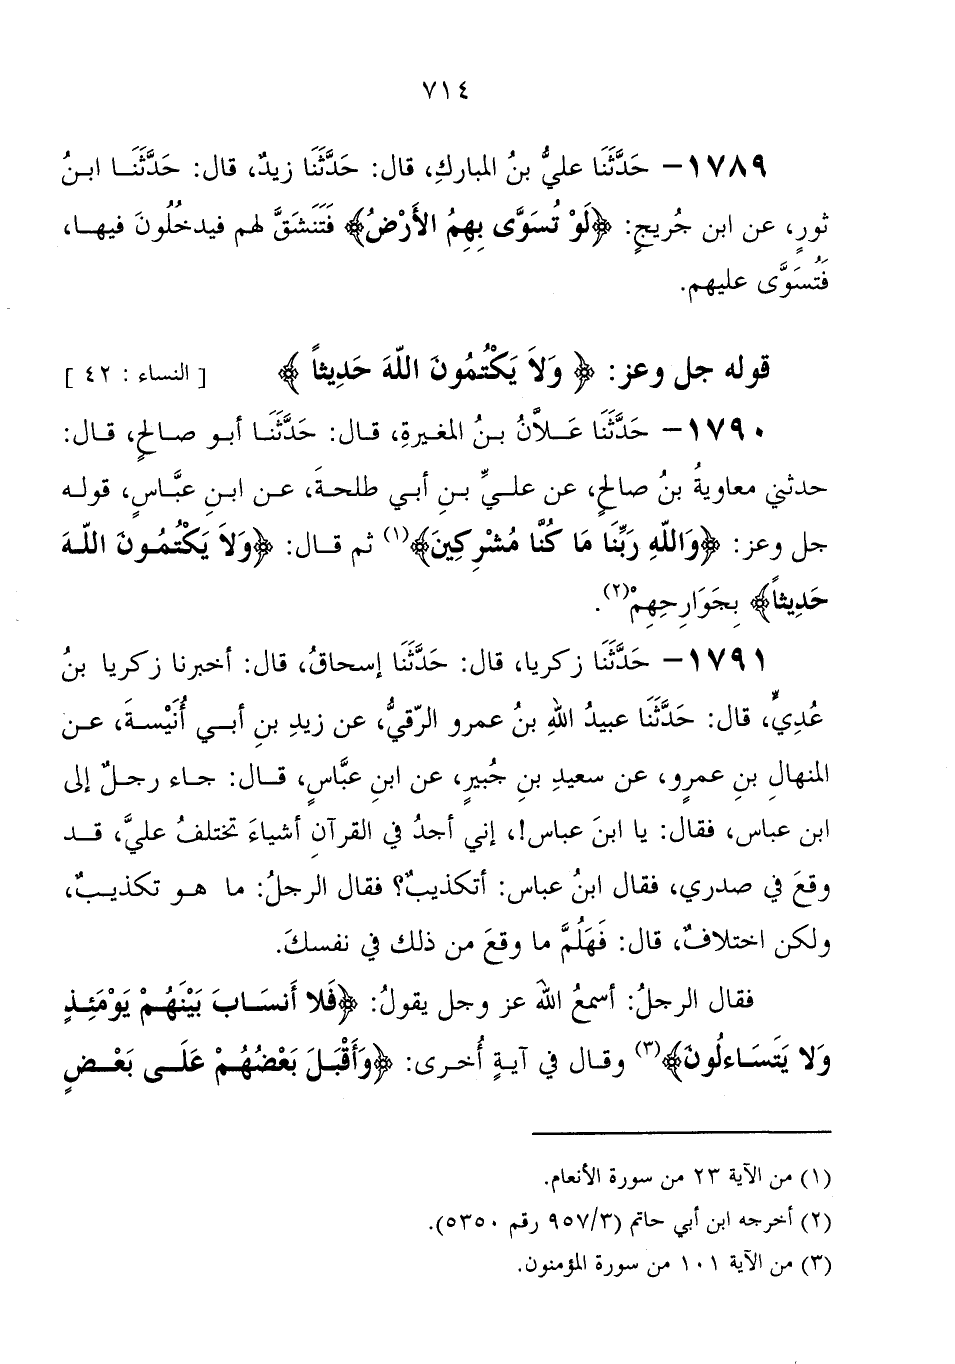 ٧١٤
١٧٨٩- حَدَّثَنَا عليُّ بنُ المباركِ، قال: حَدَّثَنَا زيدٌ، قال: حَدَّثَنَا ابنُ
ثورٍ، عن ابن جُريجٍ: ﴿لَوْ تُسَوَّى بِهِمُ الأَرْضُ﴾ فَتَنشَقَّ لهم فيدخُلُونَ فيها،
فَتُسَوَّى عليهم.
قوله جل وعز: ﴿ وَلاَ يَكْتُمُونَ اللّهَ حَدِيثاً ﴾ [ النساء : ٤٢ ]
١٧٩٠- حَدَّثَنَا عَلاَّنُ بنُ المغيرةِ، قال: حَدَّثَنَا أبو صالحٍ، قال:
حدثني معاويةُ بنُ صالحٍ، عن عليِّ بنِ أبي طلحةَ، عن ابنِ عبَّاسٍ، قوله
جل وعز: ﴿وَاللّهِ رَبِّنَا مَا كُنَّا مُشْرِكِينَ﴾(١) ثم قال: ﴿وَلاَ يَكْتُمُونَ اللّهَ
حَدِيثاً﴾ بِجَوَارِحِهِمْ(٢).
١٧٩١- حَدَّثَنَا زكريا، قال: حَدَّثَنَا إسحاقُ، قال: أخبرنا زكريا بنُ
عُدِيٍّ، قال: حَدَّثَنَا عبيدُ اللهِ بنُ عمرو الرّقيُّ، عن زيدِ بنِ أبي أُنَيْسةَ، عن
المنهالِ بنِ عمرٍو، عن سعيدِ بنِ جُبيرٍ، عن ابنِ عبَّاسٍ، قال: جاء رجلٌ إلى
ابن عباس، فقال: يا ابنَ عباس!، إني أجدُ في القرآنِ أشياءَ تختلفُ عليَّ، قد
وقعَ في صدري، فقال ابنُ عباس: أتكذيبٌ؟ فقال الرجلُ: ما هو تكذيبٌ،
ولكن اختلافٌ، قال: فَهَلُمَّ ما وقعَ من ذلك في نفسكَ.
فقال الرجلُ: أسمعُ اللهَ عز وجل يقولُ: ﴿فَلا أَنسَابَ بَيْنَهُمْ يَوْمَئِذٍ
وَلا يَتَسَاءلُونَ﴾(٣) وقال في آيةٍ أُخرى: ﴿وَأَقْبَلَ بَعْضُهُمْ عَلَى بَعْضٍ
(١) من الآية ٢٣ من سورة الأنعام.
(٢) أخرجه ابن أبي حاتم (٩٥٧/٣ رقم ٥٣٥٠).
(٣) من الآية ١٠١ من سورة المؤمنون.